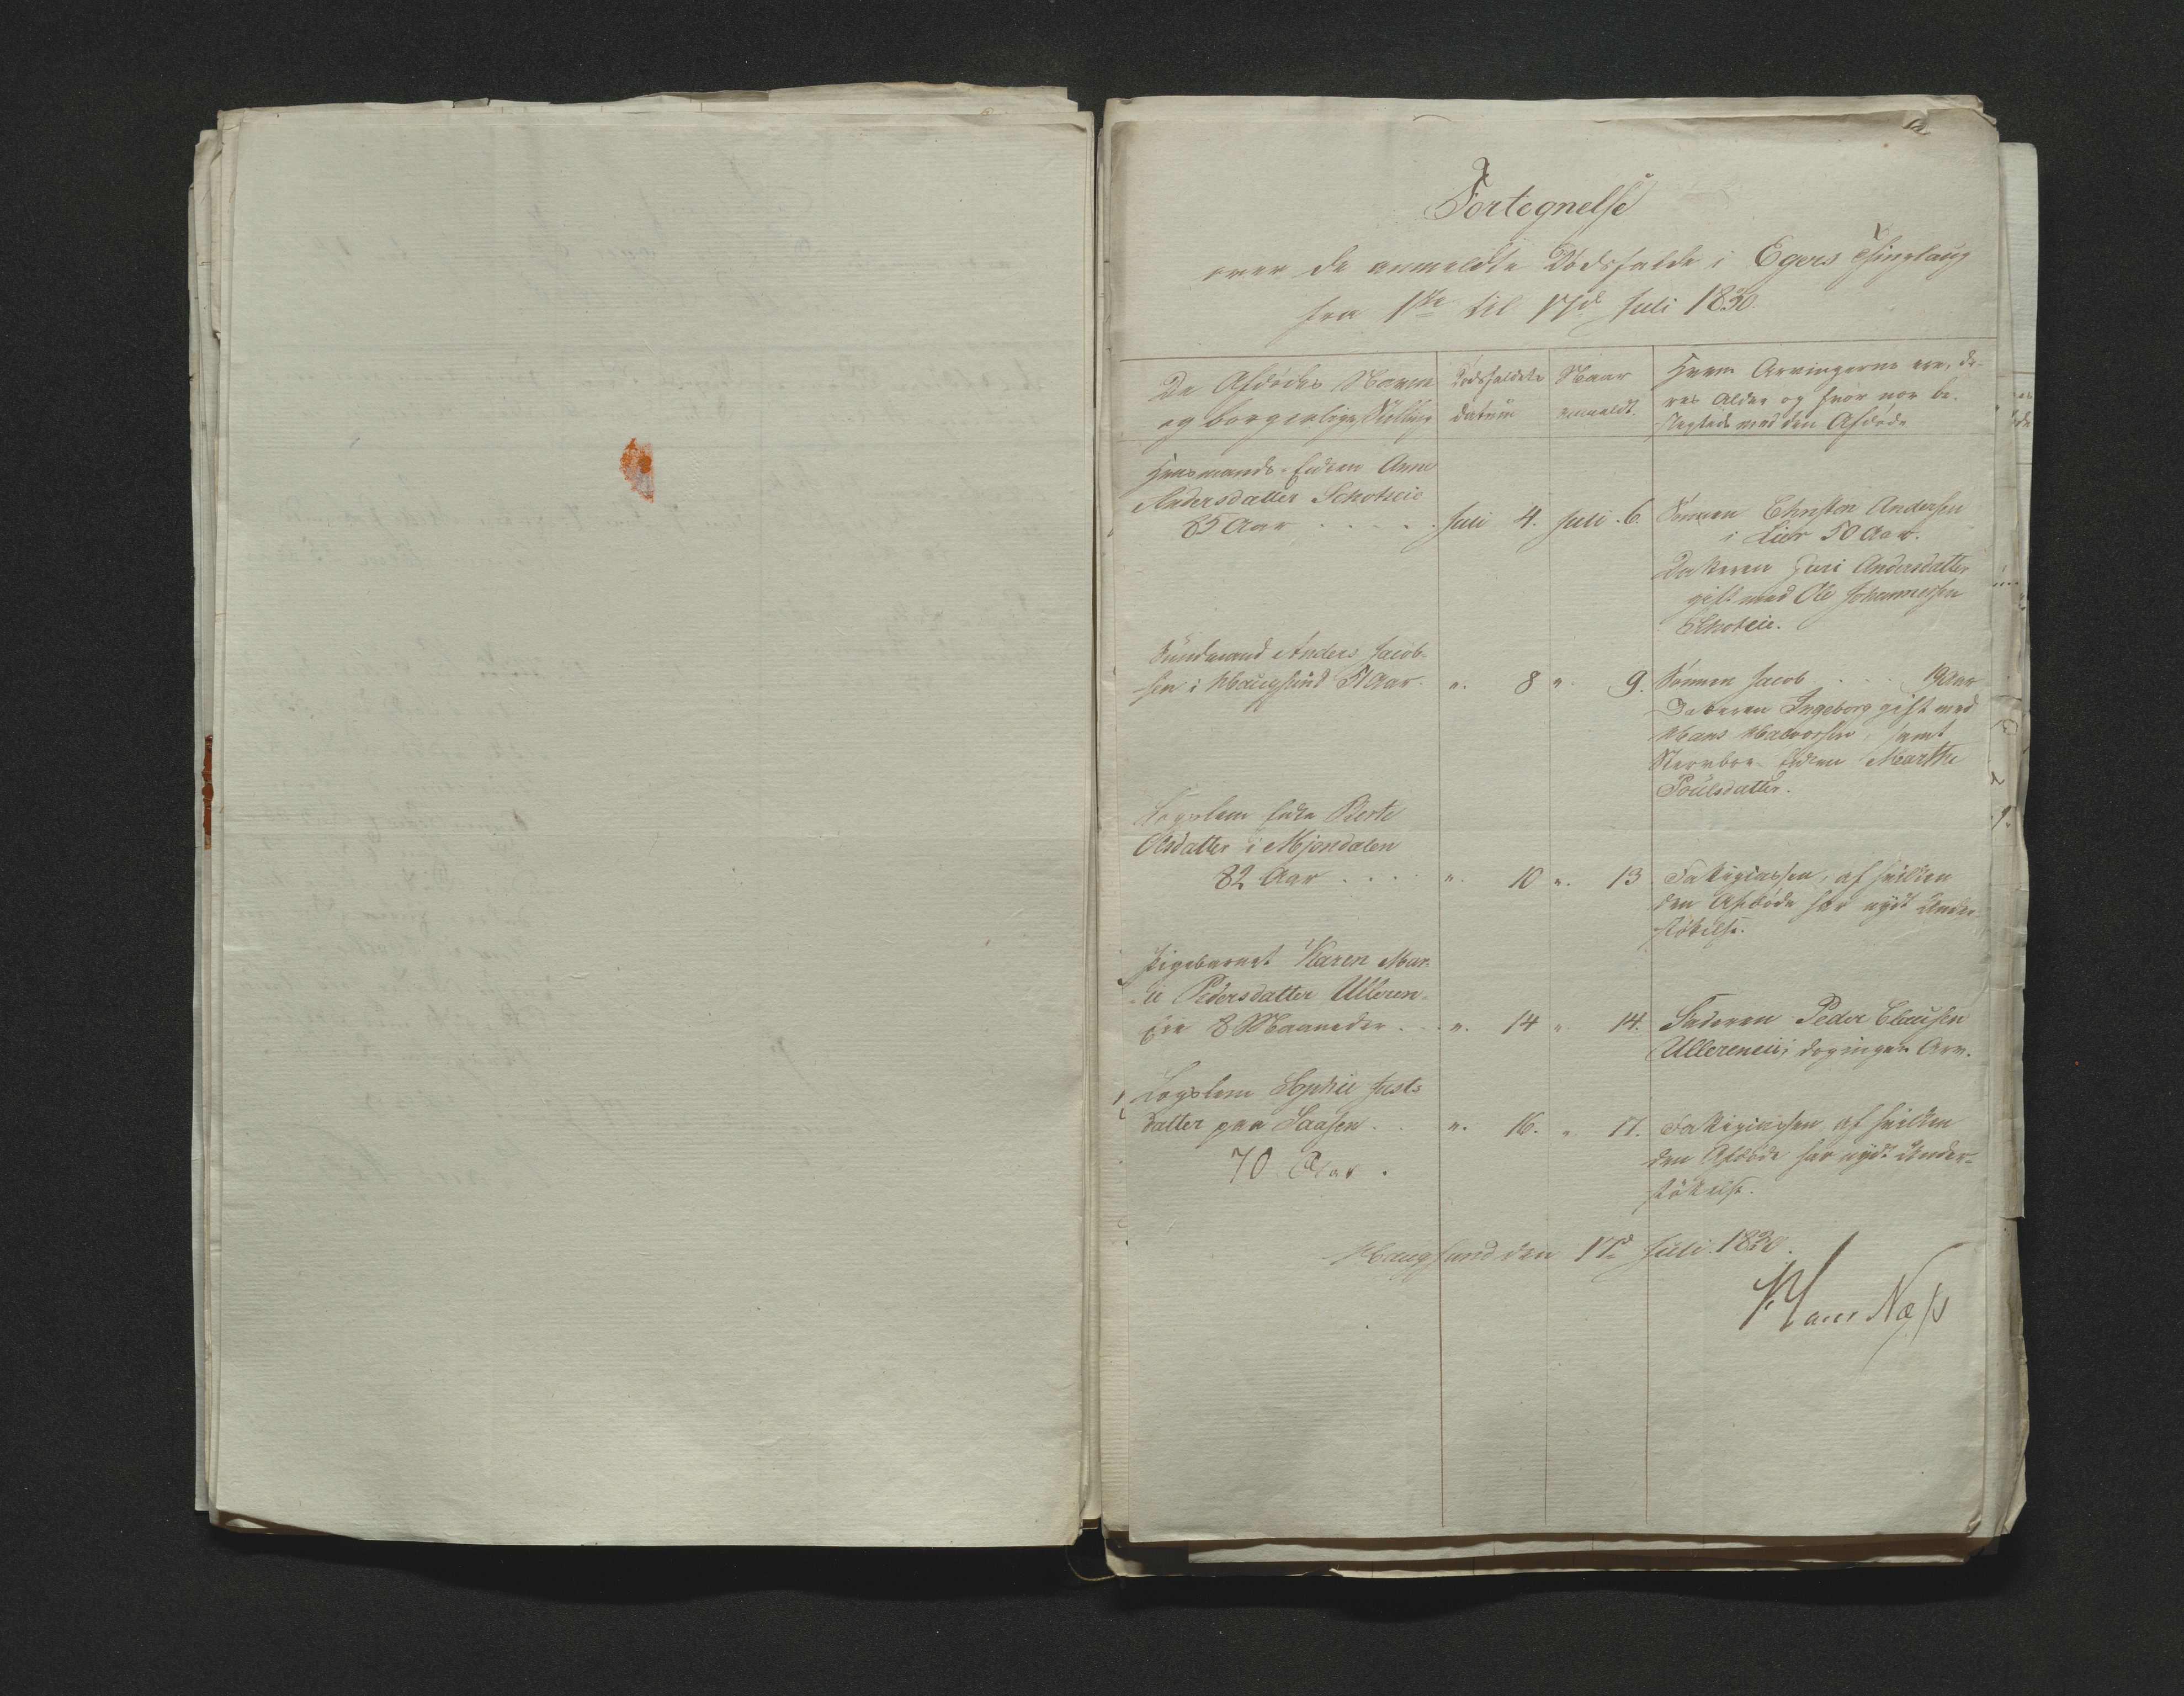 Fortegnelse
over de anmeldte Dødsfalde i Egers Thinglaug
fra 1ste til 17de Juli 1830.
De Afdødes Navn
og borgerlige Stilling
Dødsfaldets
datum
Naar
anmeldt.
Hvem Arvingerne ere, de-
res Alder og hvor nær be-
slegtede med den Afdøde
Huusmands-Enken Anne
Andersdatter Schotteie
85 Aar . . . . . Juli 4. Juli 6. Sønnen Christen Andersen
i Lier 50 Aar.
Datteren Guri Andersdatter
gift med Ole Johannessen
Schoteie.
Anders Jacob-
sen i Haugsund 51 Aar. ". 8 ". 9. Sønnen Jacob . . . 19 Aar
Datteren Ingeborg gift med
Hans Halvorsen, samt
Stervboe-Enken Marthe
Poulsdatter.
Lægslem Enke Berte
Olsdatter i Mjøndalen
82 Aar . . . . ". 10 ". 13 Fattigkassen, af hvilken
den Afdøde har nydt Under-
støttelse.
Pigebarnet Karen Mar-
ie Pedersdatter Ulleren-
eie 8 Maaneder . . ". 14 ". 14. Faderen Peder Clausen
Ullereneie; dog ingen Arv.
Lægslem Sophie Justs
datter paa Saasen . . ". 16. ". 17. Fattigkassen af hvilken
den Afdøde har nydt Under-
støttelse.
70 Aar .
Haugsund den 17de Juli 1830.
Hans Næss